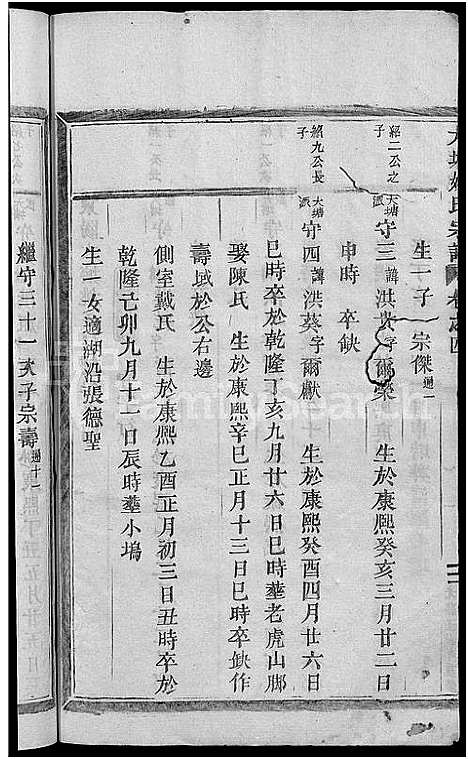 生一子　宗傑過一
紹二公之子
大塘派守三諱洪　字爾榮　生於康熙癸亥三月廿二日
申時　卒缺
紹九公長子
大塘派守四諱洪葵字爾獻　生於康熙癸酉四月廿六日
巳時卒於乾隆丁亥九月廿六日巳時葬老虎山脚
娶陳氏　生於康熙辛巳正月十三日巳時卒缺作
壽域於公右邊
側室戴氏　生於康熙乙酉正月初三日丑時卒於
乾隆己卯九月十一日辰時葬小塢
生一女適湖沿張德聖
繼守三十一次子宗壽過十一